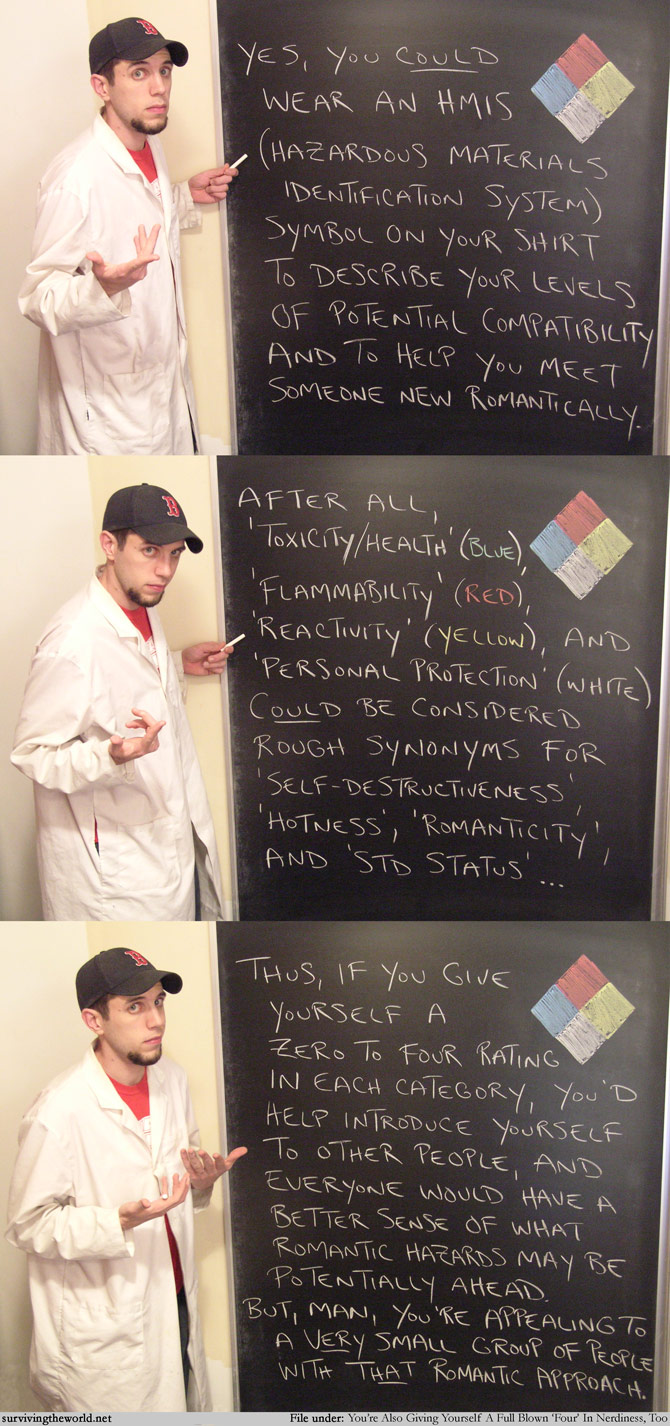 B
YES, YOU COULD
WEAR AN HMIS
(HAZARDOUS MATERIALS
IDENTIFICATION SYSTEM)
SYMBOL ON YOUR SHIRT
TO DESCRIBE YOUR LEVELS
OF POTENTIAL COMPATIBILITY
AND TO HELP YOU MEET
SOMEONE NEW ROMANTICALLY.
B
AFTER ALL,
'TOXICITY/HEALTH' (BLUE),
'FLAMMABILITY' (RED),
'REACTIVITY' (YELLOW), AND
'PERSONAL PROTECTION' (WHITE)
COULD BE CONSIDERED
ROUGH SYNONYMS FOR
'SELF-DESTRUCTIVENESS',
'HOTNESS', 'ROMANTICITY',
AND 'STD STATUS'...
B
THUS, IF YOU GIVE
YOURSELF A
ZERO TO FOUR RATING
IN EACH CATEGORY, YOU'D
HELP INTRODUCE YOURSELF
TO OTHER PEOPLE, AND
EVERYONE WOULD HAVE A
BETTER SENSE OF WHAT
ROMANTIC HAZARDS MAY BE
POTENTIALLY AHEAD.
BUT, MAN, YOU'RE APPEALING TO
A VERY SMALL GROUP OF PEOPLE
WITH THAT ROMANTIC APPROACH.
survivingtheworld.net File under: You're Also Giving Yourself A Full Blown 'Four' In Nerdiness, Too